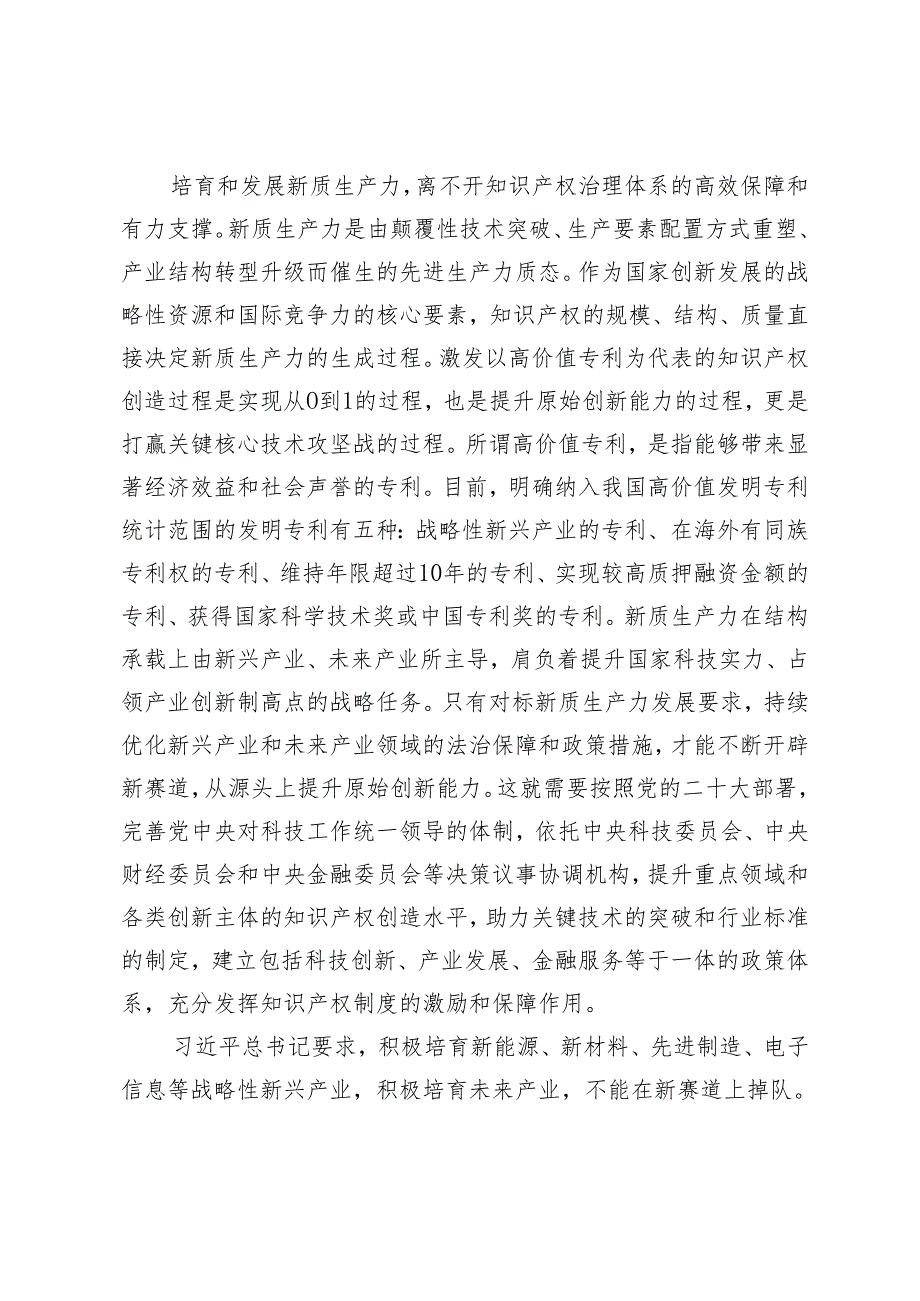 培育和发展新质生产力，离不开知识产权治理体系的高效保障和
有力支撑。新质生产力是由颠覆性技术突破、生产要素配置方式重塑、
产业结构转型升级而催生的先进生产力质态。作为国家创新发展的战
略性资源和国际竞争力的核心要素，知识产权的规模、结构、质量直
接决定新质生产力的生成过程。激发以高价值专利为代表的知识产权
创造过程是实现从0到1的过程，也是提升原始创新能力的过程，更是
打赢关键核心技术攻坚战的过程。所谓高价值专利，是指能够带来显
著经济效益和社会声誉的专利。目前，明确纳入我国高价值发明专利
统计范围的发明专利有五种：战略性新兴产业的专利、在海外有同族
专利权的专利、维持年限超过10年的专利、实现较高质押融资金额的
专利、获得国家科学技术奖或中国专利奖的专利。新质生产力在结构
承载上由新兴产业、未来产业所主导，肩负着提升国家科技实力、占
领产业创新制高点的战略任务。只有对标新质生产力发展要求，持续
优化新兴产业和未来产业领域的法治保障和政策措施，才能不断开辟
新赛道，从源头上提升原始创新能力。这就需要按照党的二十大部署，
完善党中央对科技工作统一领导的体制，依托中央科技委员会、中央
财经委员会和中央金融委员会等决策议事协调机构，提升重点领域和
各类创新主体的知识产权创造水平，助力关键技术的突破和行业标准
的制定，建立包括科技创新、产业发展、金融服务等于一体的政策体
系，充分发挥知识产权制度的激励和保障作用。
习近平总书记要求，积极培育新能源、新材料、先进制造、电子
信息等战略性新兴产业，积极培育未来产业，不能在新赛道上掉队。